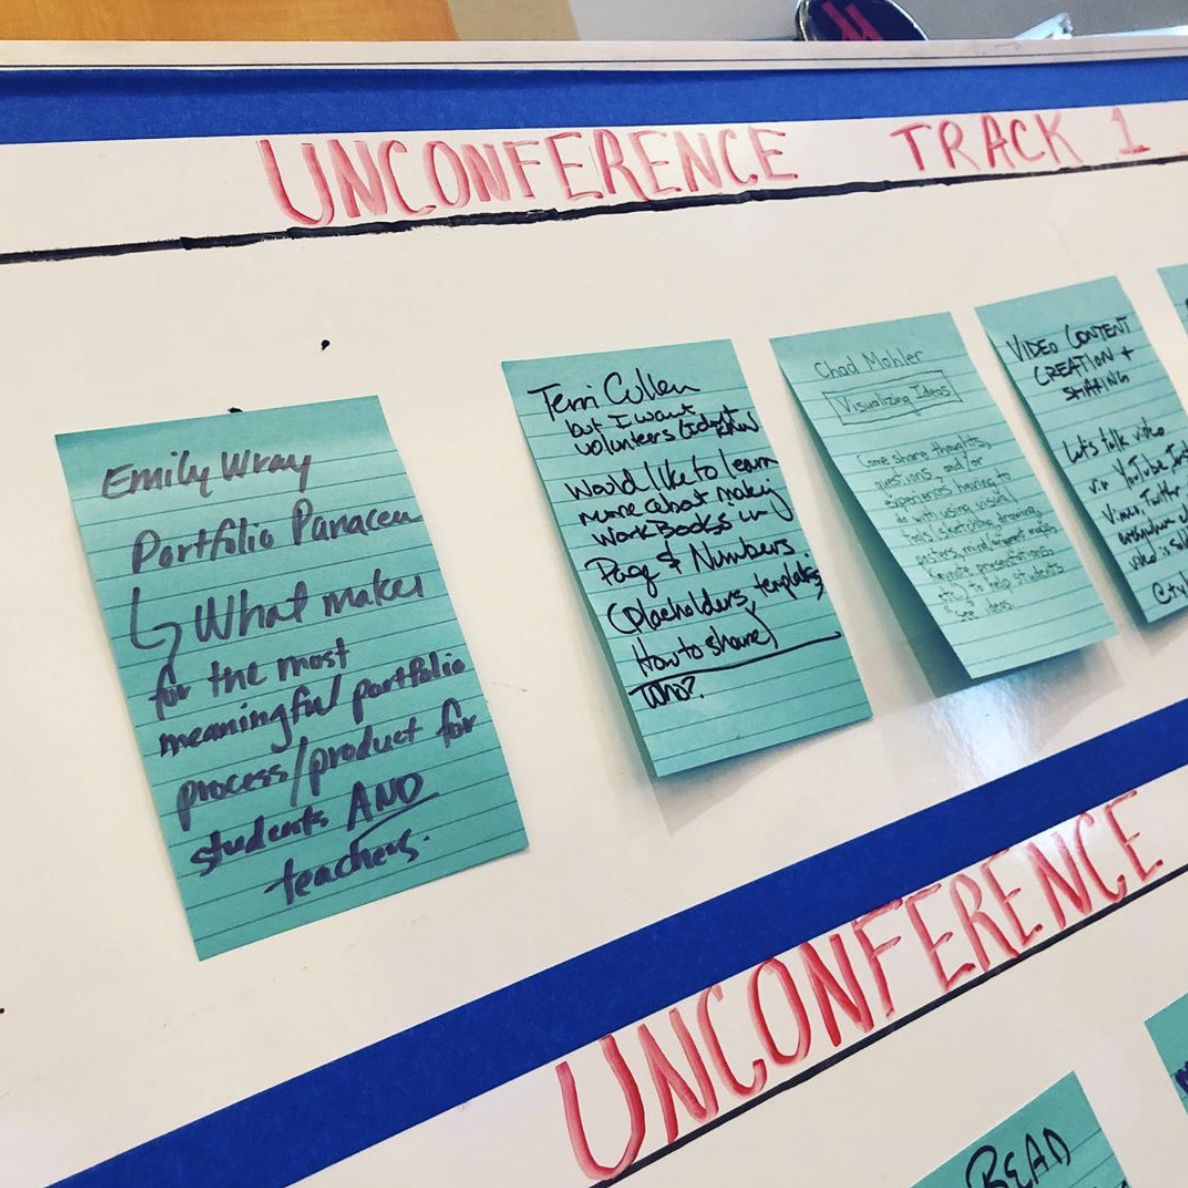 UNCONFERENCE TRACK 1
Emily Wray
Portfolio Panacea
What makes
for the most
meaningful portfolio
process/product for
students AND
teachers.
Terri Cullen
but I want
volunteers
Would like to learn
more about making
WorkBooks in
Pages & Numbers.
(placeholders, templates,
How to share)
Who?
Chad Mohler
Visualizing Ideas
Come share thoughts,
questions, and/or
experiences having to
do with using visual
tools (sketching, drawing,
posters, mind/concept maps,
Keynote presentations,
etc.) to help students
see ideas.
VIDEO CONTENT
CREATION +
SHARING
Let's talk video
YouTube,
Vimeo, Twitter
video is
UNCONFERENCE
READ